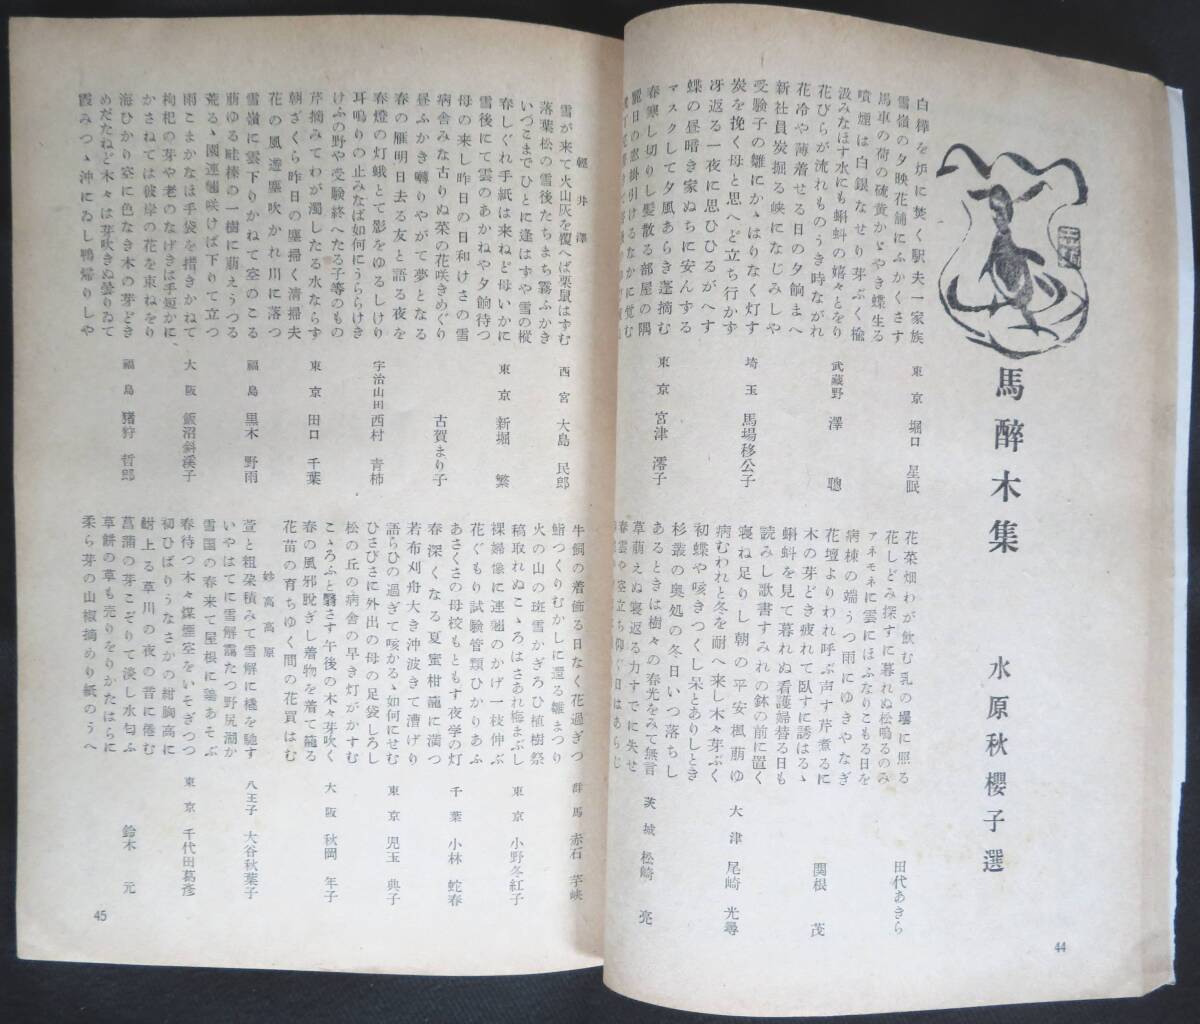 馬醉木集
水原秋櫻子選
白樺を炉に焚く駅夫一家族
雪嶺の夕映花舗にふかくさす
馬車の荷の硫黄かゞやき蝶生る
噴煙は白銀なせり芽ぶく楡
汲みなほす水にも蝌蚪の嬉々とをり
花びらが流れものうき時ながれ
花冷や薄着せる日の夕餉まへ
新社員炭掘る峡になじみしや
受験子の雛にかゝはりなく灯す
炭を挽く母と思へど立ち行かず
冴返る一夜に思ひひるがへす
蝶の昼暗き家ぬちに安んずる
マスクして夕風あらき蓬摘む
春寒し切りし髪散る部屋の隅
麗日の窓掛引けるなかに覚む
東京 堀口星眠
武蔵野 澤聰
埼玉 馬場移公子
東京 宮津澪子
花菜畑わが飲む乳の壜に照る
花しどみ探すに暮れぬ松鳴るのみ
アネモネに雲にほふなりこもる日を
病棟の端うつ雨にゆきやなぎ
花壇よりわれ呼ぶ声す芹煮るに
木の芽どき疲れて臥すに誘はるゝ
蝌蚪を見て暮れぬ看護婦替る日も
読みし歌書すみれの鉢の前に置く
寝ね足りし朝の平安楓萠ゆ
病むわれと冬を耐へ来し木々芽ぶく
初蝶や咳きつくし呆とありしとき
杉叢の奥処の冬日いつ落ちし
あるときは樹々の春光をみて無言
草萠えぬ寝返る力すでに失せ
春雲や空立ち仰ぐ日はあらじ
田代あきら
関根茂
大津 尾崎光尋
茨城 松崎亮
44
輕井澤
雪が来て火山灰を覆へば栗鼠はずむ
落葉松の雪後たちまち霧ふかき
いづこまでひとに逢はずや雪の樅
春しぐれ手紙は来ねど母いかに
雪後にて雲のあかねや夕餉待つ
母の来し昨日の日和けさの雪
病舎みな古りぬ菜の花咲きめぐり
昼ふかき囀りやがて夢となる
春の雁明日去る友と語る夜を
春燈の灯蛾とて影をゆるしけり
耳鳴りの止みなば如何にうららけき
けふの野や受験終へたる子等のもの
芹摘みてわが濁したる水ならず
朝ざくら昨日の塵掃く清掃夫
花の風道塵吹かれ川に落つ
雪嶺に雲下りかねて空のこる
萠ゆる畦榛の一樹に萠えうつる
荒るゝ園連翹咲けば下りて立つ
雨こまかなは手袋を措きかねて
枸杞の芽や老のなげきは手短かに
かさねては彼岸の花を束ねをり
海ひかり室に色なき木の芽どき
めだたねど木々は芽吹きぬ曇りゐて
霞みつゝ沖にゐし鴨帰りしや
西宮 大島民郎
東京 新堀繁
古賀まり子
宇治山田 西村青柿
東京 田口千葉
福島 黒木野雨
大阪 飯沼斜溪子
福島 猪狩哲郎
牛飼の着飾る日なく花過ぎつ
鮠つくりむかしに還る雛まつり
火の山の斑雪かぎろひ植樹祭
稿取れぬこゝろはさあれ梅まぶし
裸婦像に連翹のかげ一枝伸ぶ
花ぐもり試験管類ひかりあふ
あさくさの母校もともす夜学の灯
春深くなる夏蜜柑籠に満つ
若布刈舟大き沖波きて漕げり
語らひの過ぎて咳かるゝ如何にせむ
ひさびさに外出の母の足袋しろし
松の丘の病舎の早き灯がかすむ
こゝろふと翳さす午後の木々芽吹く
春の風邪脱ぎし着物を着て籠る
花苗の育ちゆく間の花買はむ
妙高高原
萱と粗朶積みて雪解に橇を馳す
いやはてに雪解靄たつ野尻湖か
雪国の春来て屋根に鶏あそぶ
春待つ木々煤煙室をいそぎつつ
初ひばりうなさかの紺胸高に
鮒上る草川の夜の音に倦む
菖蒲の芽こぞりて淡し水匂ふ
草餅の草も売りをりかたはらに
柔ら芽の山椒摘めり紙のうへ
群馬 赤石芋峡
東京 小野冬紅子
千葉 小林蛇春
東京 児玉典子
大阪 秋岡年子
八王子 大谷秋葉子
東京 千代田葛彦
鈴木元
45